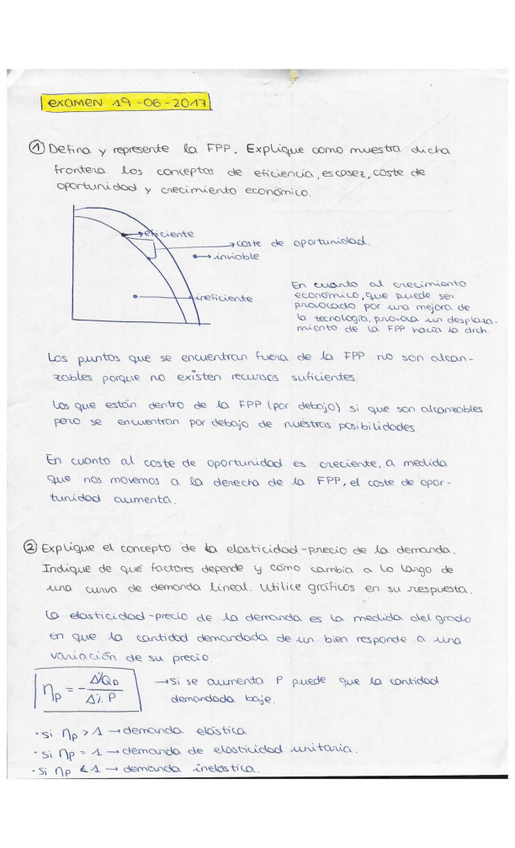 EXAMEN 19-06-2017
① Defina y represente la FPP. Explique como muestra dicha
frontera los conceptos de eficiencia, escasez, coste de
oportunidad y crecimiento económico.
eficiente
coste de oportunidad.
inviable
ineficiente
En cuanto al crecimiento
económico, que puede ser
provocado por una mejora de
la tecnología, provoca un desplaza-
miento de la FPP hacia la drch.
Los puntos que se encuentran fuera de la FPP no son alcan-
zables porque no existen recursos suficientes.
Los que están dentro de la FPP (por debajo) si que son alcanzables
pero se encuentran por debajo de nuestras posibilidades.
En cuanto al coste de oportunidad es creciente, a medida
que nos movemos a la derecha de la FPP, el coste de opor-
tunidad aumenta.
② Explique el concepto de la elasticidad-precio de la demanda.
Indique de qué factores depende y cómo cambia a lo largo de
una curva de demanda lineal. Utilice gráficos en su respuesta.
La elasticidad-precio de la demanda es la medida del grado
en que la cantidad demandada de un bien responde a una
variación de su precio.
ηp = - Δ%QD / Δ% P → si se aumenta P puede que la cantidad
demandada baje.
· si ηp > 1 → demanda elástica
· si ηp = 1 → demanda de elasticidad unitaria.
· si ηp < 1 → demanda inelástica.